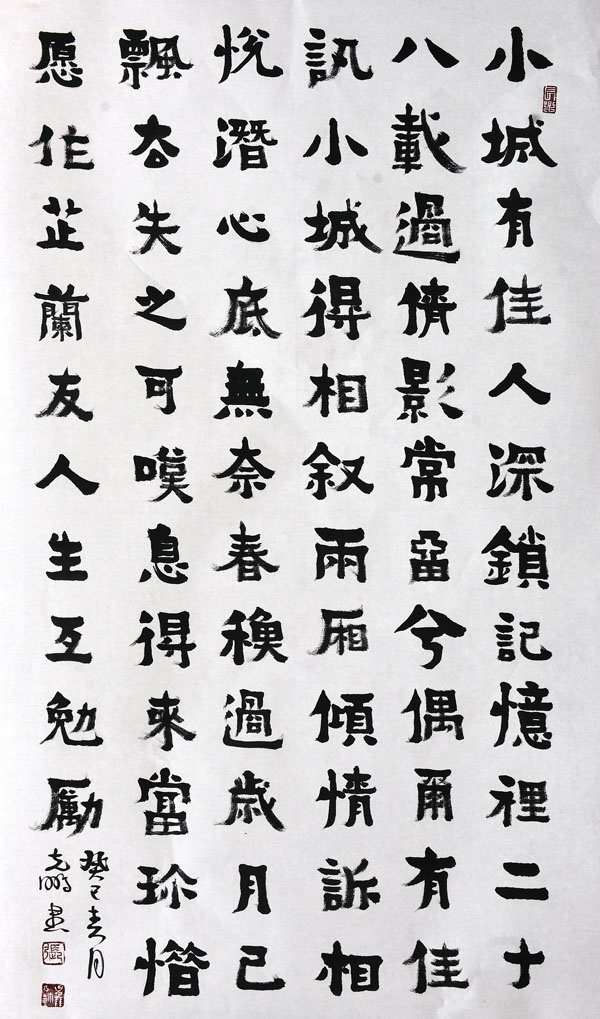 小城有佳人深鎖記憶裡二十
八載過倩影常留兮偶爾有佳
訊小城得相叙兩廂傾情訴相
悅潛心底無奈春穐過歲月已
飄去失之可嘆息得來當珍惜
愿作芷蘭友人生互勉勵
癸巳春月
克鹏书